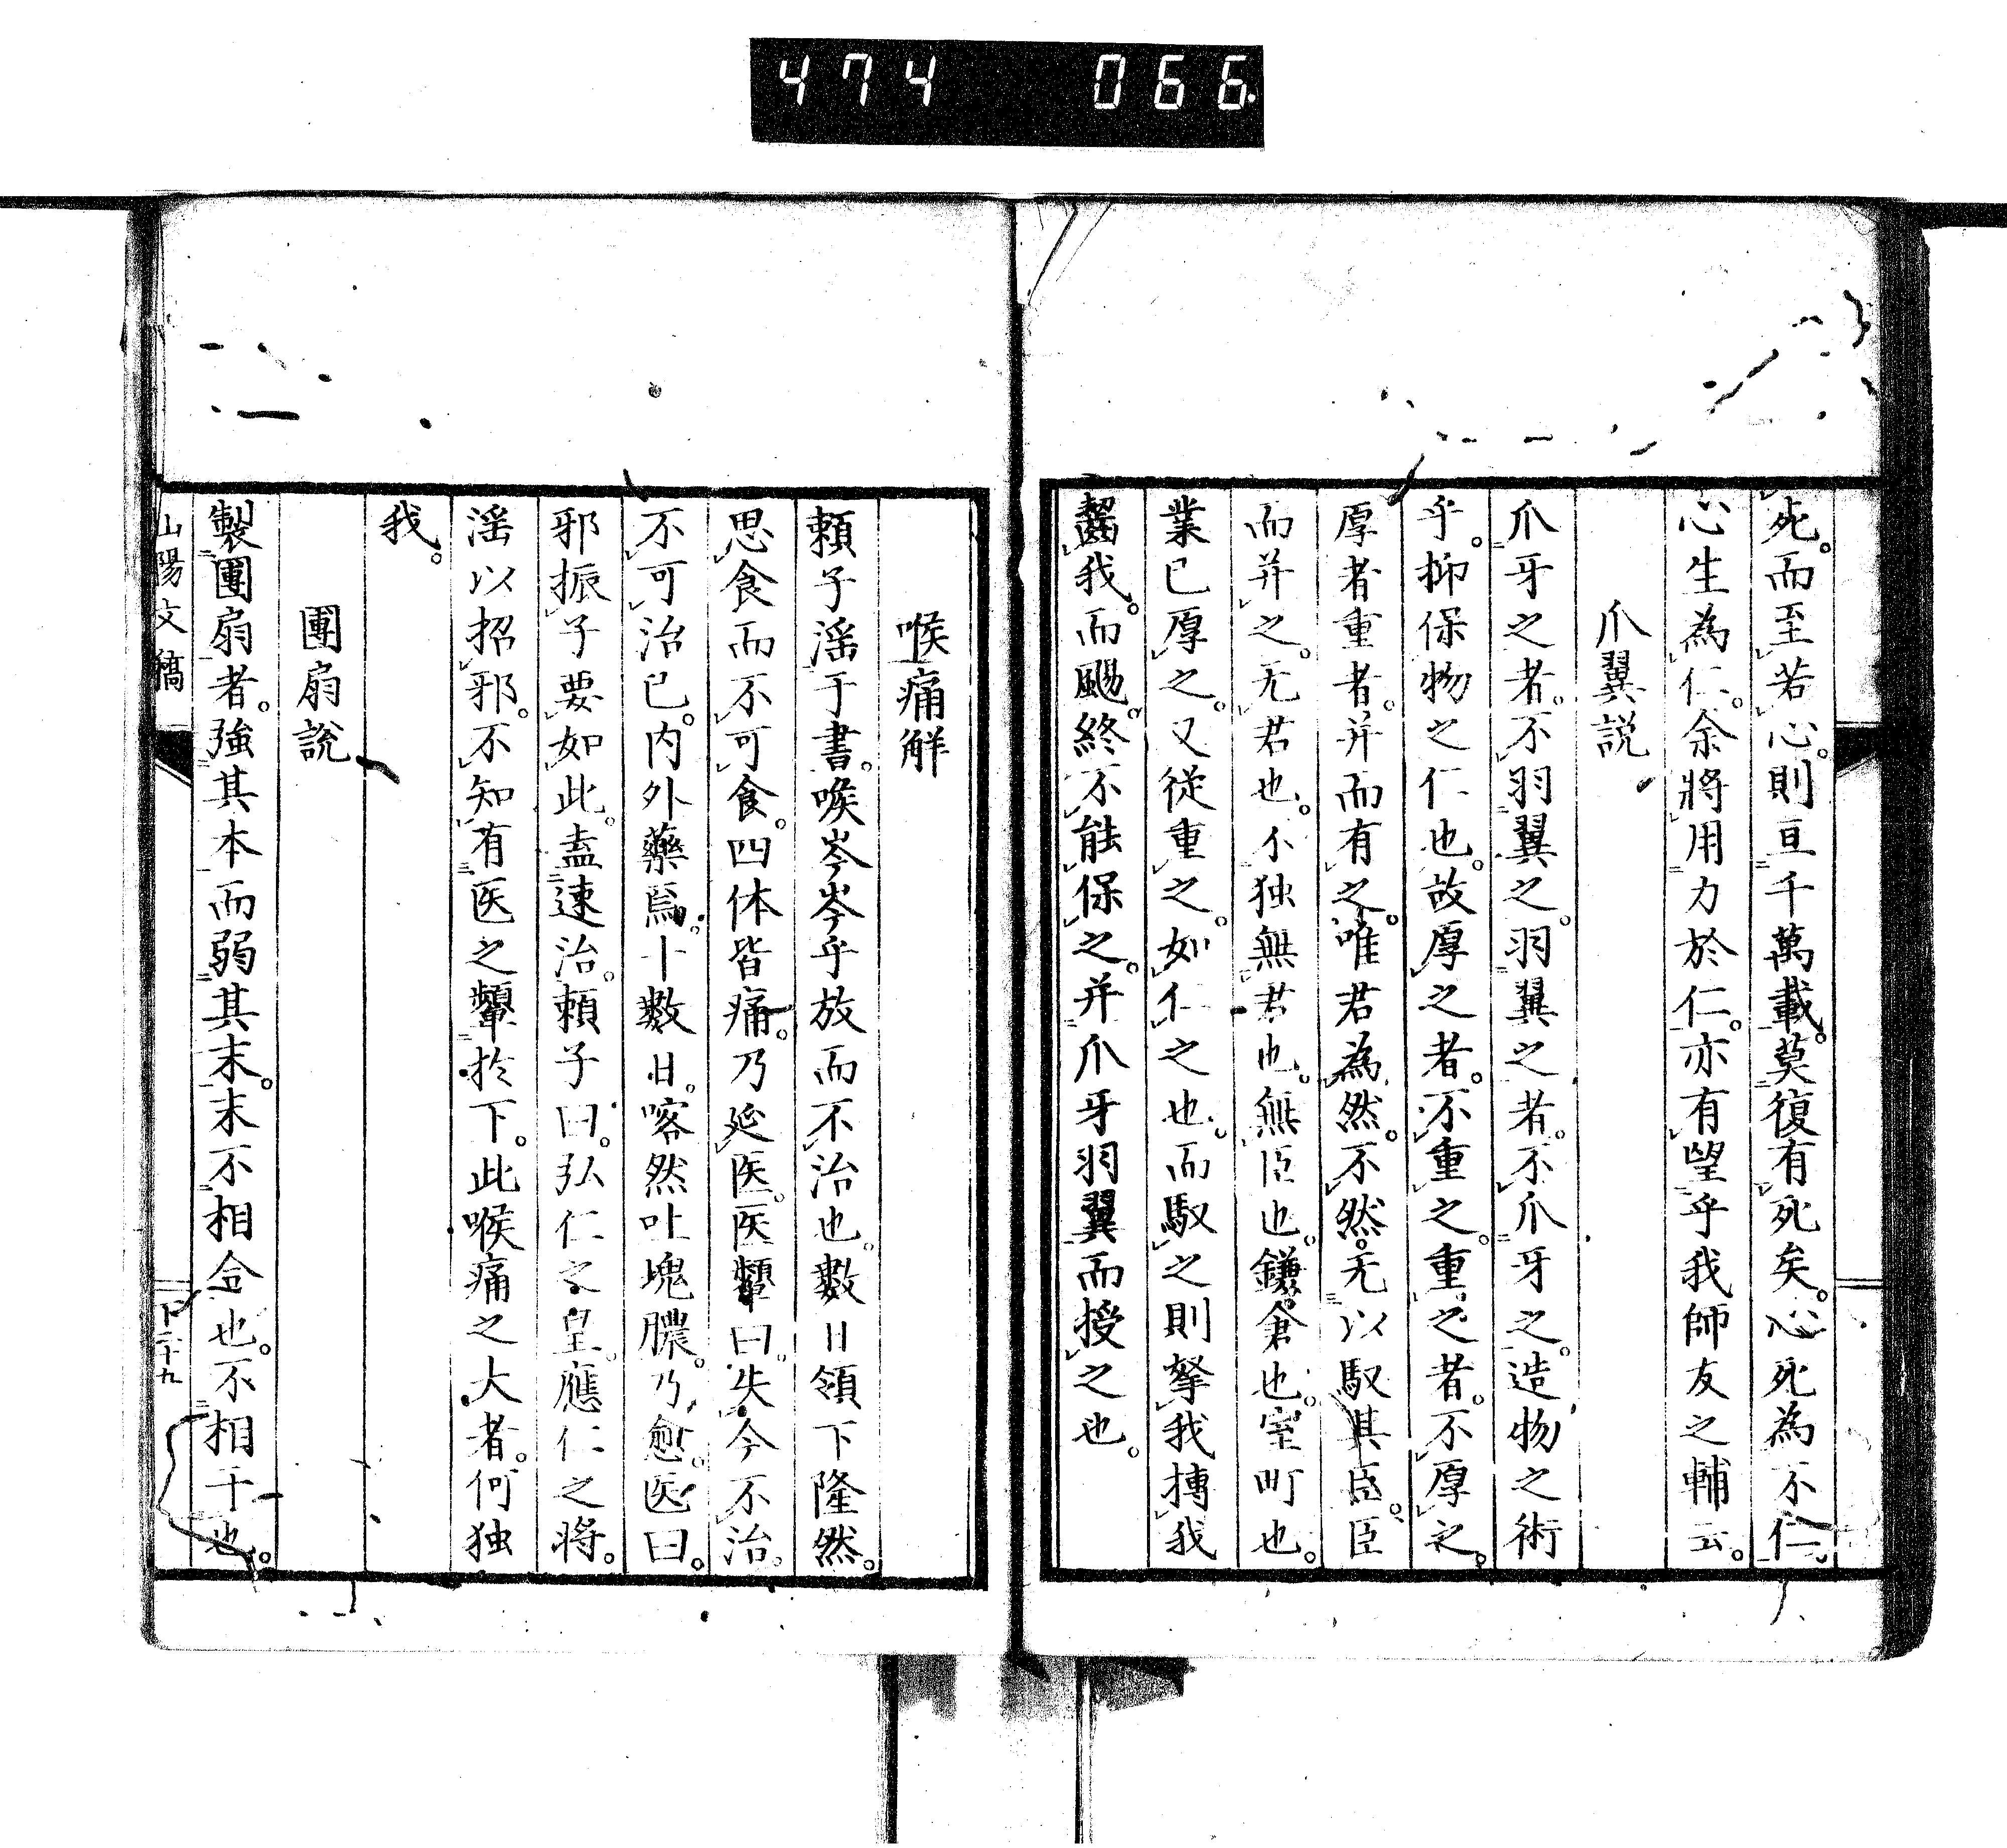 474 066
死。而至若心。則亘千萬載。莫復有死矣。心死為不仁。
心生為仁。余將用力於仁。亦有望乎我師友之輔云。
爪翼説
爪牙之者。不羽翼之。羽翼之者。不爪牙之。造物之術
乎。抑保物之仁也。故厚之者。不重之。重之者。不厚之。
厚者重者。并而有之。唯君為然。不然。无以馭其臣。臣
而并之。无君也。不独無君也。無臣也。鎌倉也。室町也。
業已厚之。又從重之。如仁之也。而馭之則拏我搏我
齧我。而颺。終不能保之。并爪牙羽翼而授之也。
喉痛解
頼子滛于書。喉岑岑乎放而不治也。數日頷下隆然。
思食而不可食。四体皆痛。乃延医。医顰曰。失今不治。
不可治已。内外藥焉。十數日。喀然吐塊膿。乃愈。医曰。
邪振子要如此。盍速治。頼子曰。弘仁之皇。應仁之將。
滛以招邪。不知有医之顰於下。此喉痛之大者。何独
我。
團扇説
製團扇者。強其本而弱其末。末不相合也。不相干也。
山陽文稿
下二十九